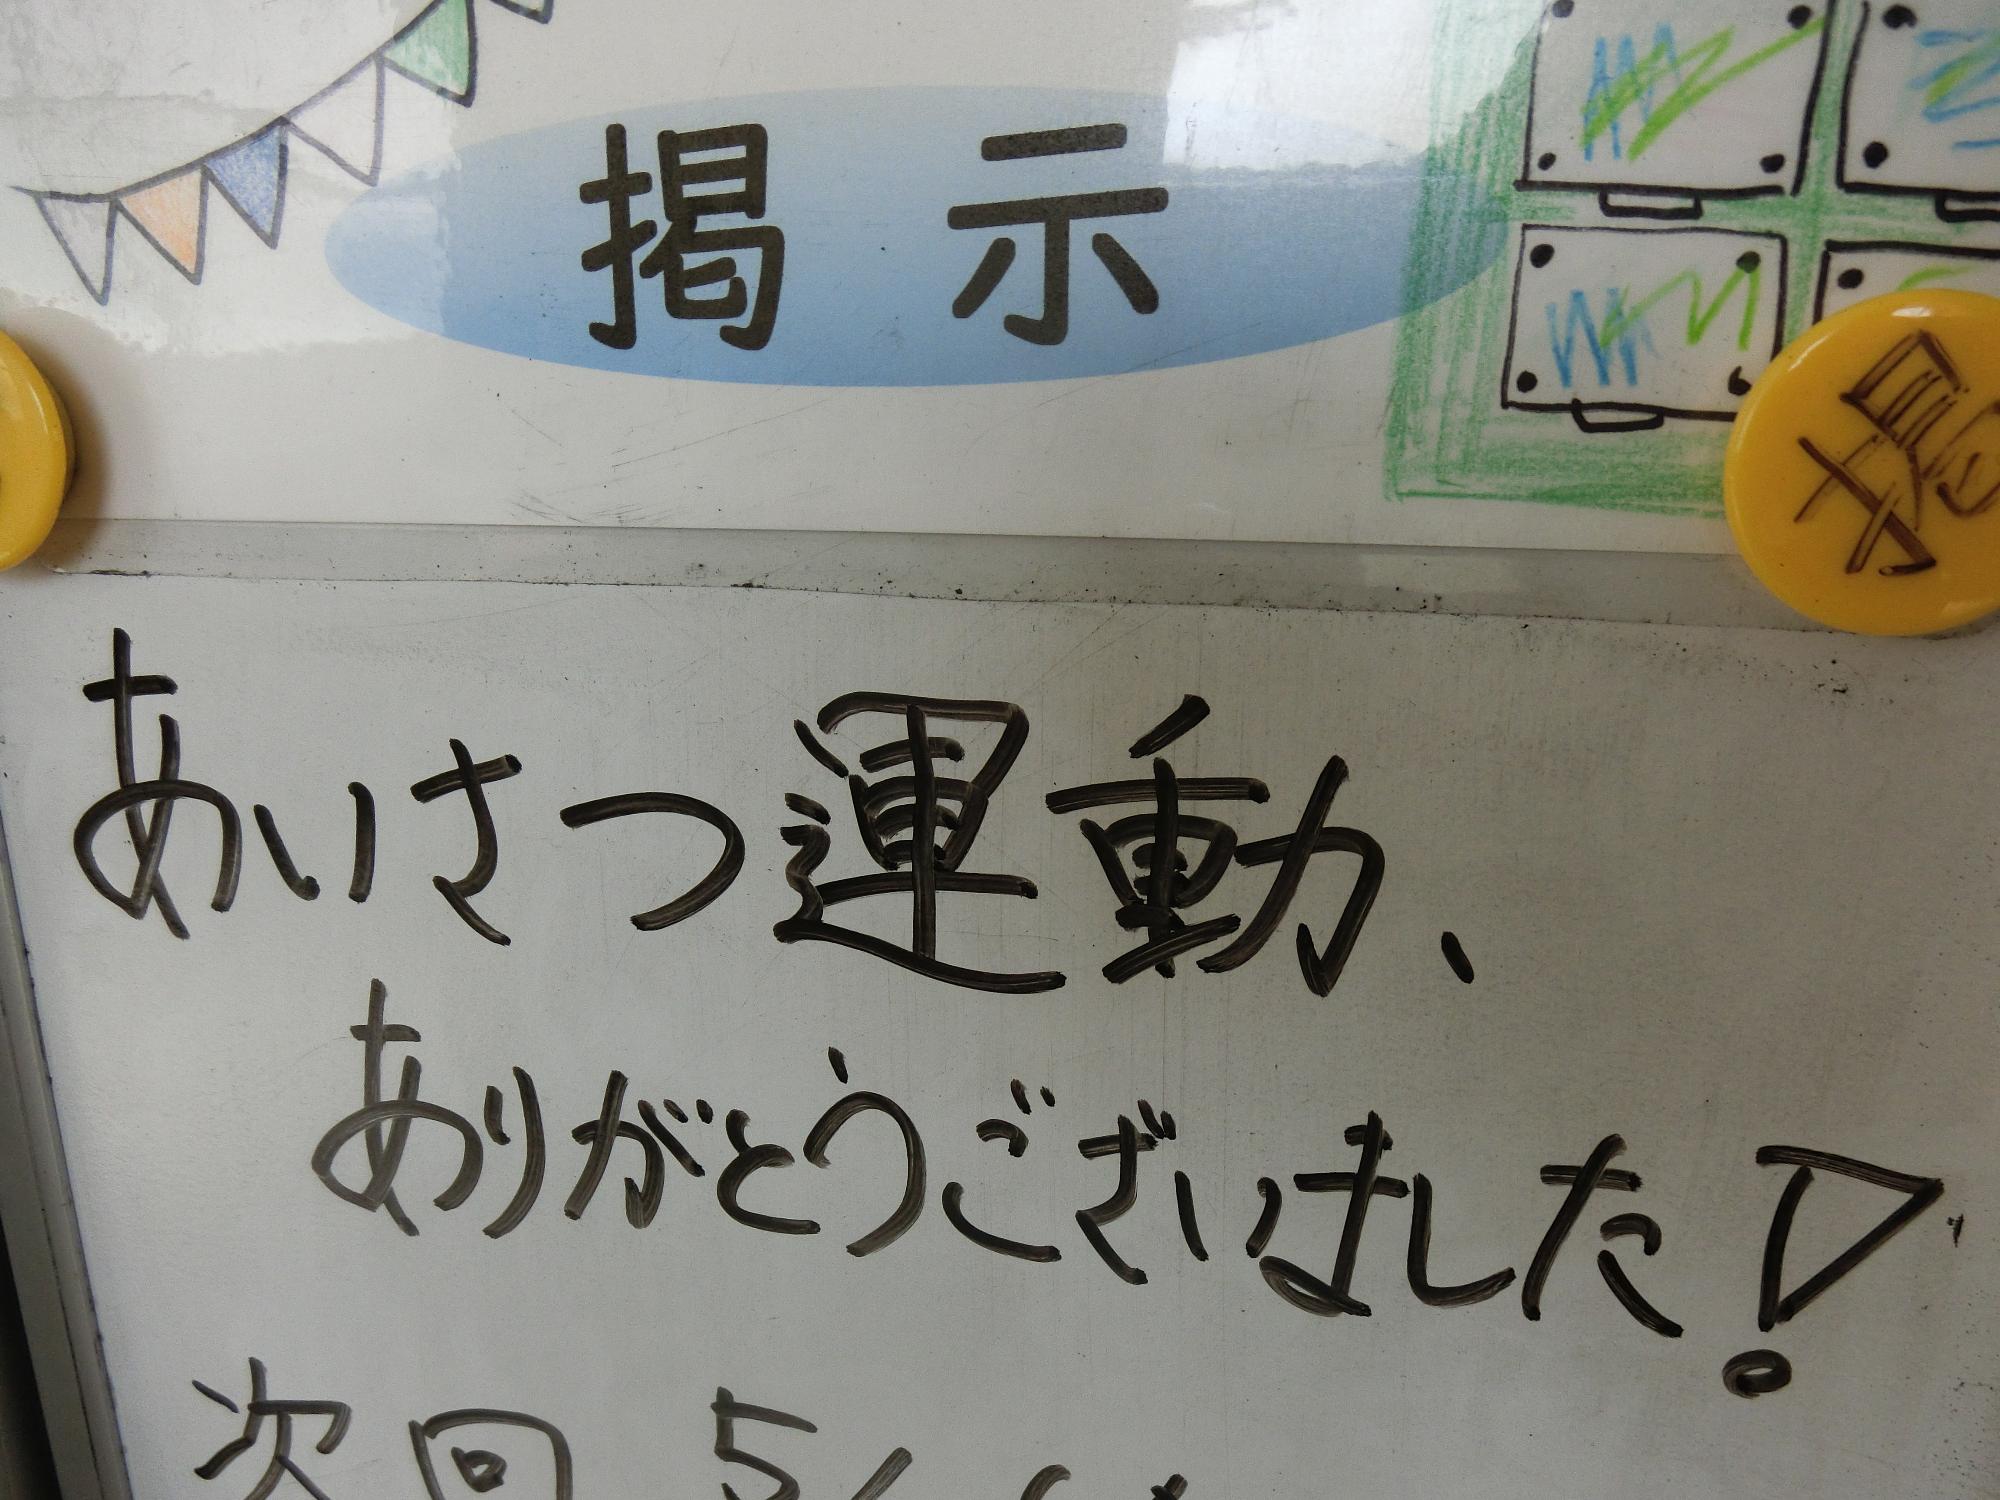 掲示
あいさつ運動、
ありがとうございました!
次回 5/